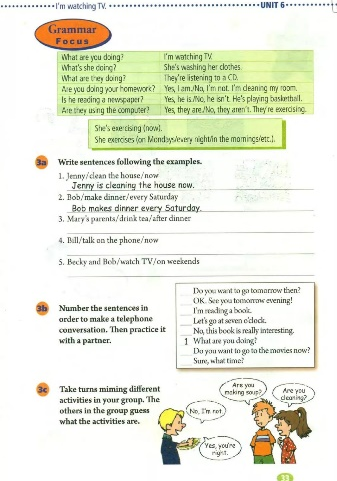 I'm watching TV.
UNIT 6
Grammar
Focus
What are you doing? I'm watching TV.
What's she doing? She's washing her clothes.
What are they doing? They're listening to a CD.
Are you doing your homework? Yes, I am./No, I'm not. I'm cleaning my room.
Is he reading a newspaper? Yes, he is./No, he isn't. He's playing basketball.
Are they using the computer? Yes, they are./No, they aren't. They're exercising.
She's exercising (now).
She exercises (on Mondays/every night/in the mornings/etc.).
3a Write sentences following the examples.
1. Jenny/clean the house/now
Jenny is cleaning the house now.
2. Bob/make dinner/every Saturday
Bob makes dinner every Saturday.
3. Mary's parents/drink tea/after dinner
4. Bill/talk on the phone/now
5. Becky and Bob/watch TV/on weekends
3b Number the sentences in
order to make a telephone
conversation. Then practice it
with a partner.
Do you want to go tomorrow then?
OK. See you tomorrow evening!
I'm reading a book.
Let's go at seven o'clock.
No, this book is really interesting.
1 What are you doing?
Do you want to go to the movies now?
Sure, what time?
3c Take turns miming different
activities in your group. The
others in the group guess
what the activities are.
Are you
making soup?
Are you
cleaning?
No, I'm not.
Yes, you're
right.
33